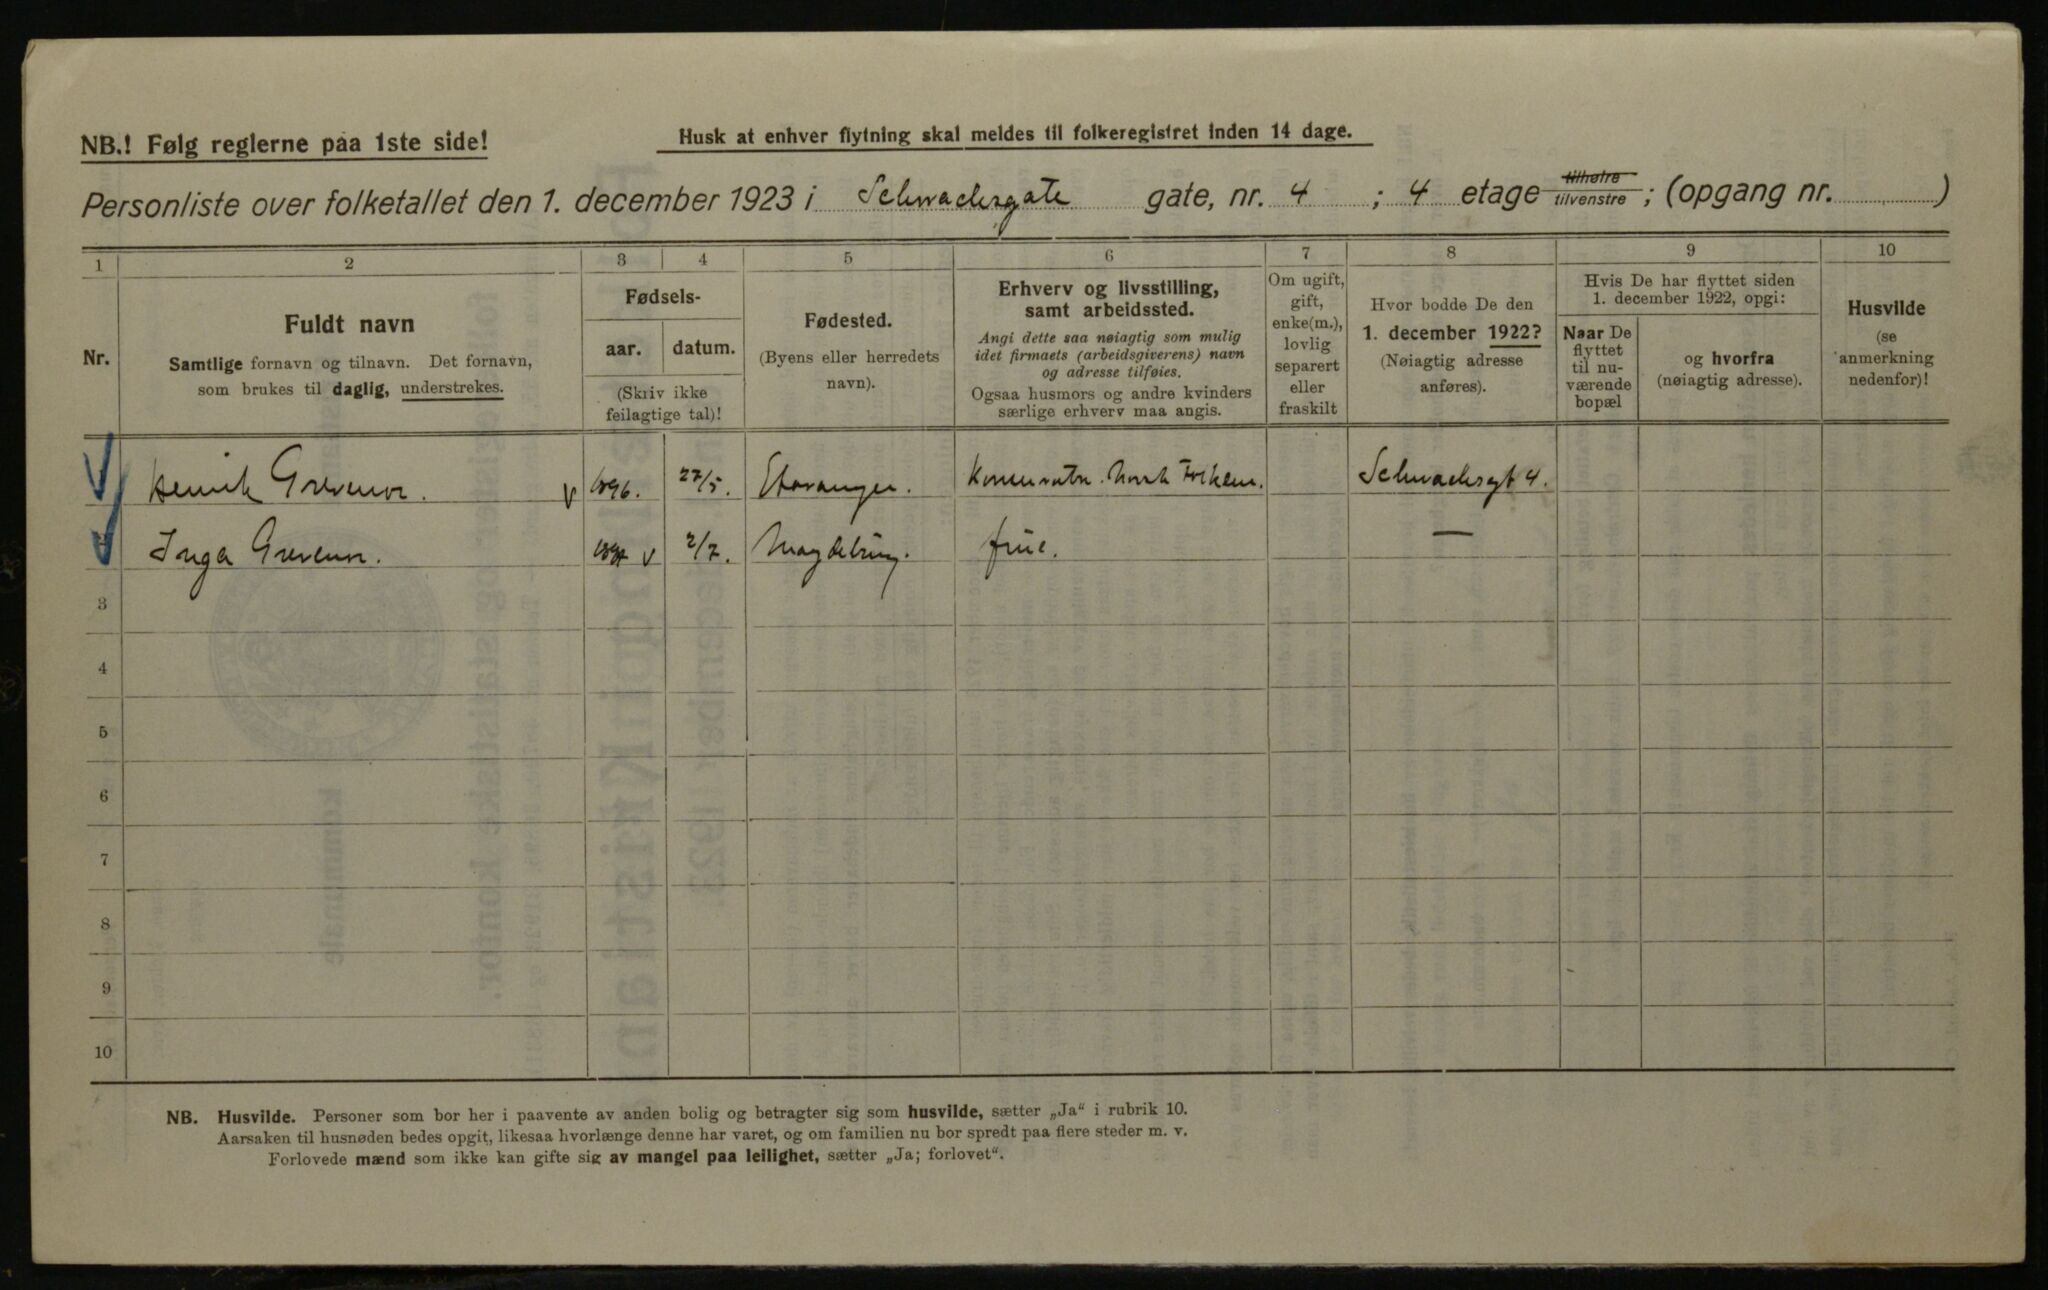 NB.! Følg reglerne paa 1ste side!
Husk at enhver flytning skal meldes til folkeregistret inden 14 dage.
Personliste over folketallet den 1. december 1923 i Schwachsgate gate, nr. 4 ; 4 etage tilhøire tilvenstre ; (opgang nr. )
1 2 3 4 5 6 7 8 9 10
Nr.
Fuldt navn
Samtlige fornavn og tilnavn. Det fornavn,
som brukes til daglig, understrekes.
Fødsels-
aar. datum.
(Skriv ikke
feilagtige tal)!
Fødested.
(Byens eller herredets
navn).
Erhverv og livsstilling,
samt arbeidssted.
Angi dette saa nøiagtig som mulig
idet firmaets (arbeidsgiverens) navn
og adresse tilføies.
Ogsaa husmors og andre kvinders
særlige erhverv maa angis.
Om ugift,
gift,
enke(m.),
lovlig
separert
eller
fraskilt
Hvor bodde De den
1. december 1922?
(Nøiagtig adresse
anføres).
Hvis De har flyttet siden
1. december 1922, opgi:
Naar De
flyttet
til nu-
værende
bopæl
og hvorfra
(nøiagtig adresse).
Husvilde
(se
anmerkning
nedenfor)!
Henrik Grevenor. v 1896. 27/5. Stavanger. Konservator. Norsk Folkem. Schwachsgt 4.
Inga Grevenor. v 2/7. Magdeburg. frue. —
3
4
5
6
7
8
9
10
NB. Husvilde. Personer som bor her i paavente av anden bolig og betragter sig som husvilde, sætter „Ja" i rubrik 10.
Aarsaken til husnøden bedes opgit, likesaa hvorlænge denne har varet, og om familien nu bor spredt paa flere steder m. v.
Forlovede mænd som ikke kan gifte sig av mangel paa leilighet, sætter „Ja; forlovet".